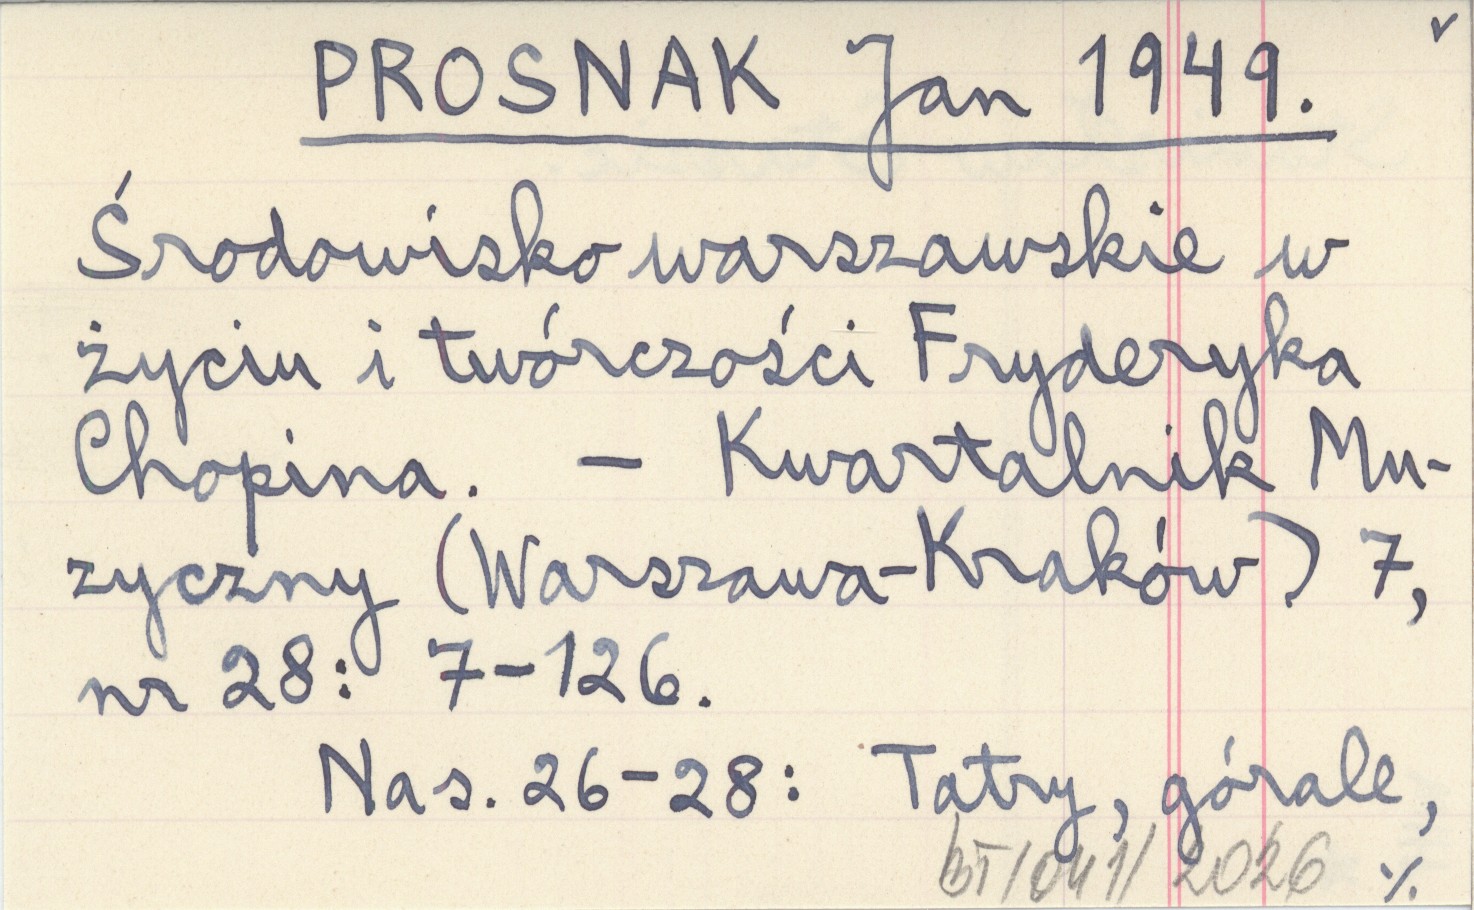 PROSNAK Jan 1949.
Środowisko warszawskie w
życiu i twórczości Fryderyka
Chopina. – Kwartalnik Mu-
zyczny (Warszawa-Kraków) 7,
nr 28: 7–126.
Na s. 26–28: Tatry, górale,
BT/041/2026 ./.